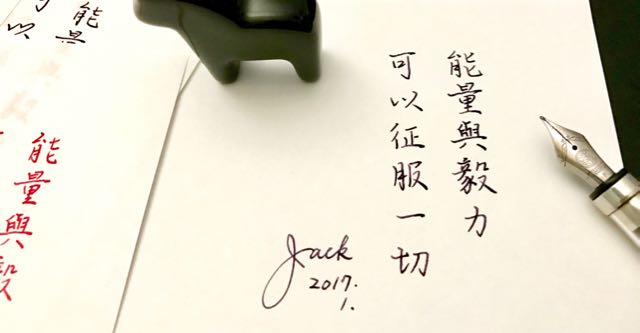 能量與毅力
可以征服一切
Jack
2017.
1.
能量與毅
能量
可以